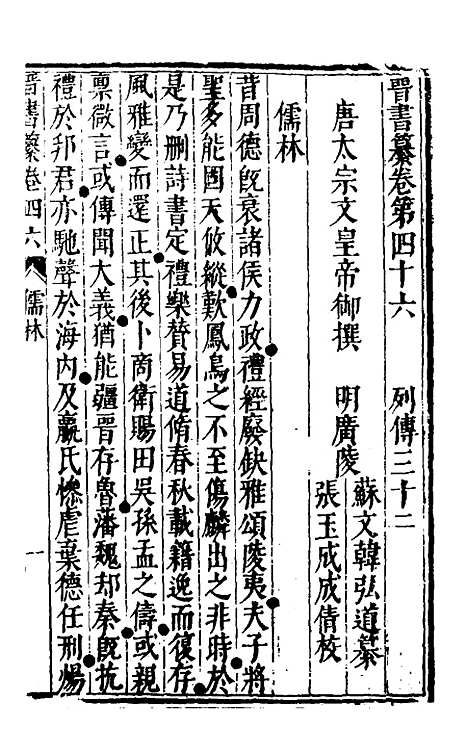 晉書纂卷第四十六　列傳三十二
唐太宗文皇帝御撰　明廣陵
蘇文韓弘道纂
張玉成成倩校
儒林
昔周德旣衰諸侯力政禮經廢缺雅頌陵夷夫子將
聖多能固天攸縱歎鳳鳥之不至傷麟出之非時於
是乃刪詩書定禮樂賛易道脩春秋載籍逸而復存
風雅變而還正其後卜商衛賜田吳孫孟之儔或親
禀微言或傳聞大義猶能彊晉存魯藩魏却秦旣抗
禮於邦君亦馳聲於海内及嬴氏慘虐棄德任刑煬
晉書纂卷四六　儒林　一